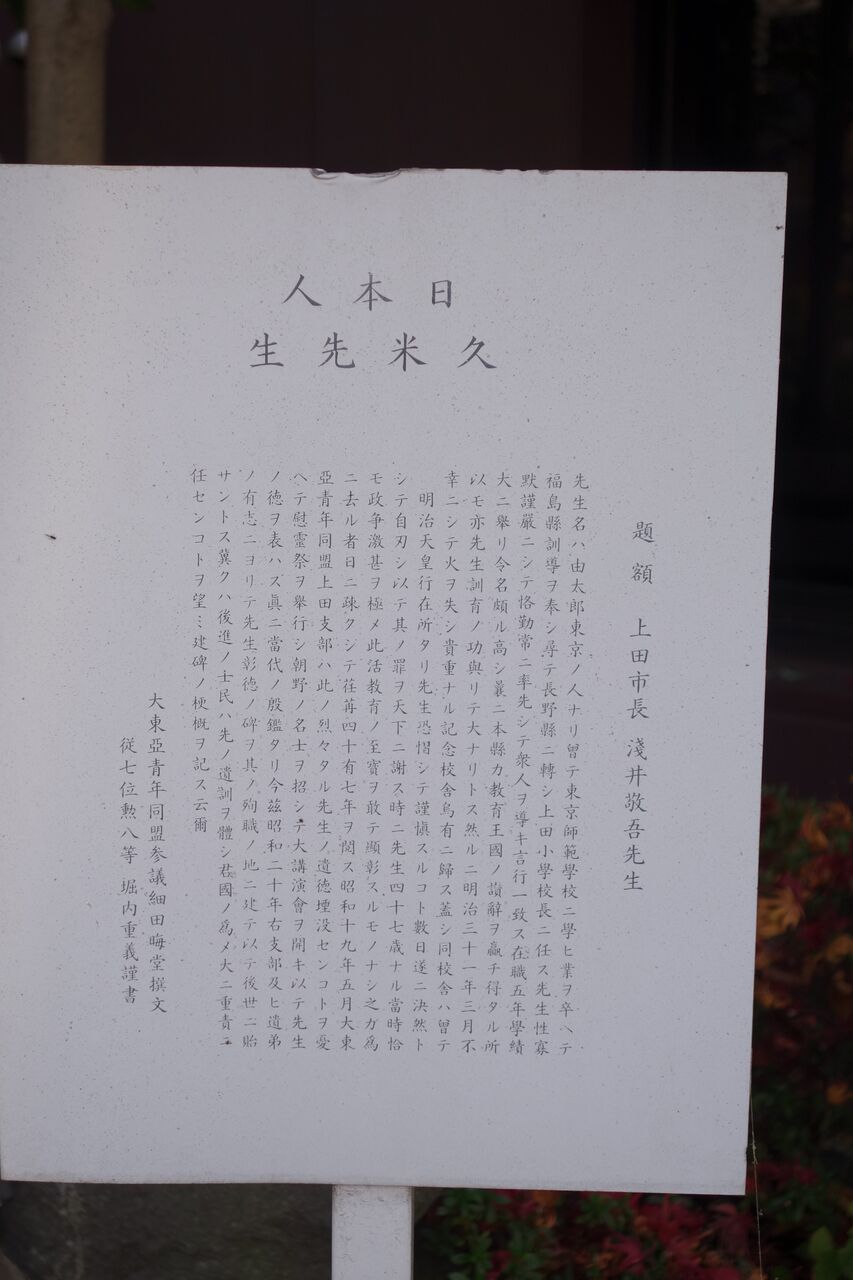 日本人
久米先生
題額　上田市長　淺井敬吾先生
先生名ハ由太郎東京ノ人ナリ曾テ東京師範學校ニ學ヒ業ヲ卒ヘテ
福島縣訓導ヲ奉シ尋テ長野縣ニ轉シ上田小學校長ニ任ス先生性寡
默謹嚴ニシテ恪勤常ニ率先シテ衆人ヲ導キ言行一致ス在職五年學績
大ニ舉リ令名頗ル高シ曩ニ本縣カ教育王國ノ讃辭ヲ贏チ得タル所
以モ亦先生訓育ノ功與リテ大ナリトス然ルニ明治三十一年三月不
幸ニシテ火ヲ失シ貴重ナル記念校舎烏有ニ歸ス蓋シ同校舎ハ曾テ
明治天皇行在所タリ先生恐懼シテ謹愼スルコト數日遂ニ決然ト
シテ自刃シ以テ其ノ罪ヲ天下ニ謝ス時ニ先生四十七歳ナル當時恰
モ政争激甚ヲ極メ此活教育ノ至寳ヲ敢テ顯彰スルモノナシ之ガ爲
ニ去ル者日ニ疎クシテ荏苒四十有七年ヲ閲ス昭和十九年五月大東
亞青年同盟上田支部ハ此ノ烈々タル先生ノ遺德堙没センコトヲ憂
ヘテ慰靈祭ヲ舉行シ朝野ノ名士ヲ招シテ大講演會ヲ開キ以テ先生
ノ德ヲ表ハス眞ニ當代ノ殷鑑タリ今茲昭和二十年右支部及ヒ遺弟
ノ有志ニヨリテ先生彰德ノ碑ヲ其ノ殉職ノ地ニ建テ以テ後世ニ貽
サントス冀クハ後進ノ士民ハ先ノ遺訓ヲ體シ君國ノ爲メ大ニ重責ニ
任センコトヲ望ミ建碑ノ梗概ヲ記ス云爾
大東亞青年同盟参議細田晦堂撰文
從七位勲八等　堀内重義謹書